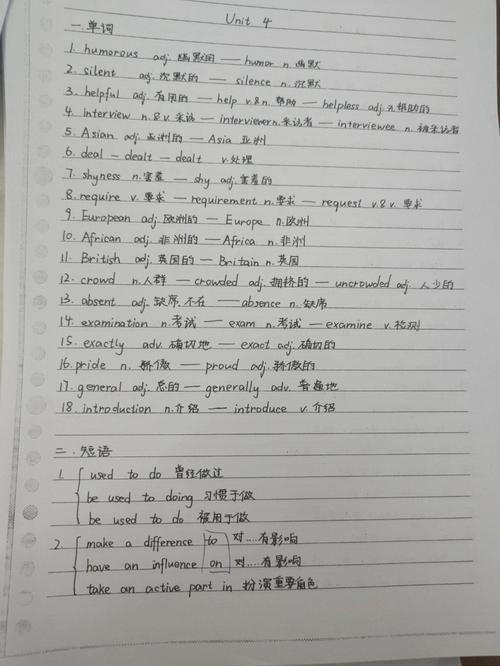 Unit 4
一.单词
1. humorous adj. 幽默的 — humor n. 幽默
2. silent adj. 沉默的 — silence n. 沉默
3. helpful adj. 有用的 — help v.&n. 帮助 — helpless adj. 无帮助的
4. interview n.&v. 采访 — interviewer n. 采访者 — interviewee n. 被采访者
5. Asian adj. 亚洲的 — Asia 亚洲
6. deal — dealt — dealt v. 处理
7. shyness n. 害羞 — shy adj. 害羞的
8. require v. 要求 — requirement n. 要求 — request v.& v. 要求
9. European adj. 欧洲的 — Europe n. 欧洲
10. African adj. 非洲的 — Africa n. 非洲
11. British adj. 英国的 — Britain n. 英国
12. crowd n. 人群 — crowded adj. 拥挤的 — uncrowded adj. 人少的
13. absent adj. 缺席,不在 — absence n. 缺席
14. examination n. 考试 — exam n. 考试 — examine v. 检测
15. exactly adv. 确切地 — exact adj. 确切的
16. pride n. 骄傲 — proud adj. 骄傲的
17. general adj. 总的 — generally adv. 普遍地
18. introduction n. 介绍 — introduce v. 介绍
二.短语
1. used to do 曾经做过
be used to doing 习惯于做
be used to do 被用于做
2. make a difference to 对....有影响
have an influence on 对....有影响
take an active part in 扮演重要角色